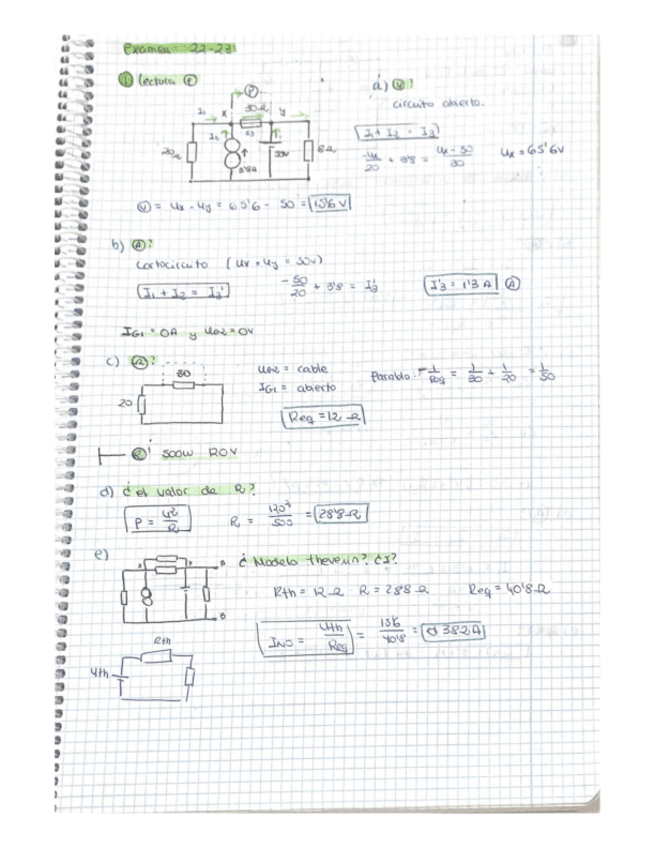 Examen 22-23
1 lectura
a) V?
circuito abierto.
I1 + I2 = I3
-Ux/20 + 3'8 = Ux - 50/30
Ux = 65'6V
I1
x
30Ω
y
I2
I3
20Ω
3'8A
50V
8Ω
V = Ux - Uy = 65'6 - 50 = 15'6 V
b) A?
Cortocircuito (Ux = Uy = 50V)
I1 + I2 = I'3
-50/20 + 3'8 = I'3
I'3 = 1'3 A
A
IG1 = 0A y UG2 = 0V
c) Ω?
30
20
UG2 = cable
IG1 = abierto
Paralelo: 1/Req = 1/30 + 1/20 = 1/50
Req = 12 Ω
R 500W
d) ¿el valor de R?
P = U²/R
R = 120²/500 = 28'8 Ω
e)
A
B
¿Modelo thevenin? ¿I?
Rth = 12 Ω R = 28'8 Ω Req = 40'8 Ω
= Uth/Req = 15'6/40'8 = 0'382A
Rth
Uth